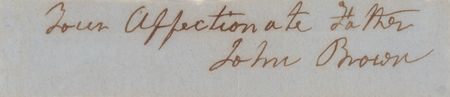 Your Affectionate Father
John Brown